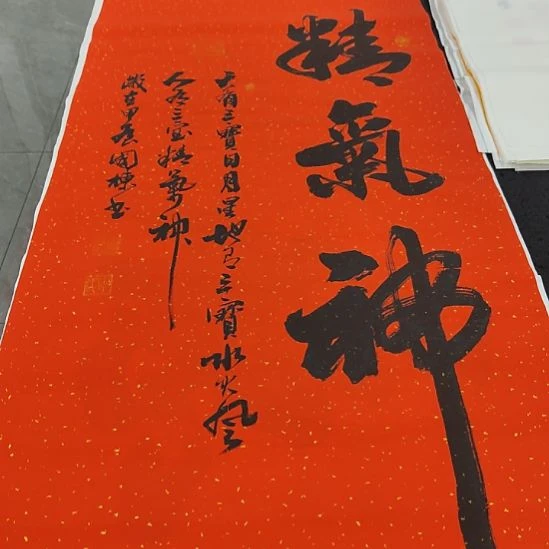 精氣神
天有三寶日月星地有三寶水火風
人有三宝精氣神
歲在甲辰國棟书